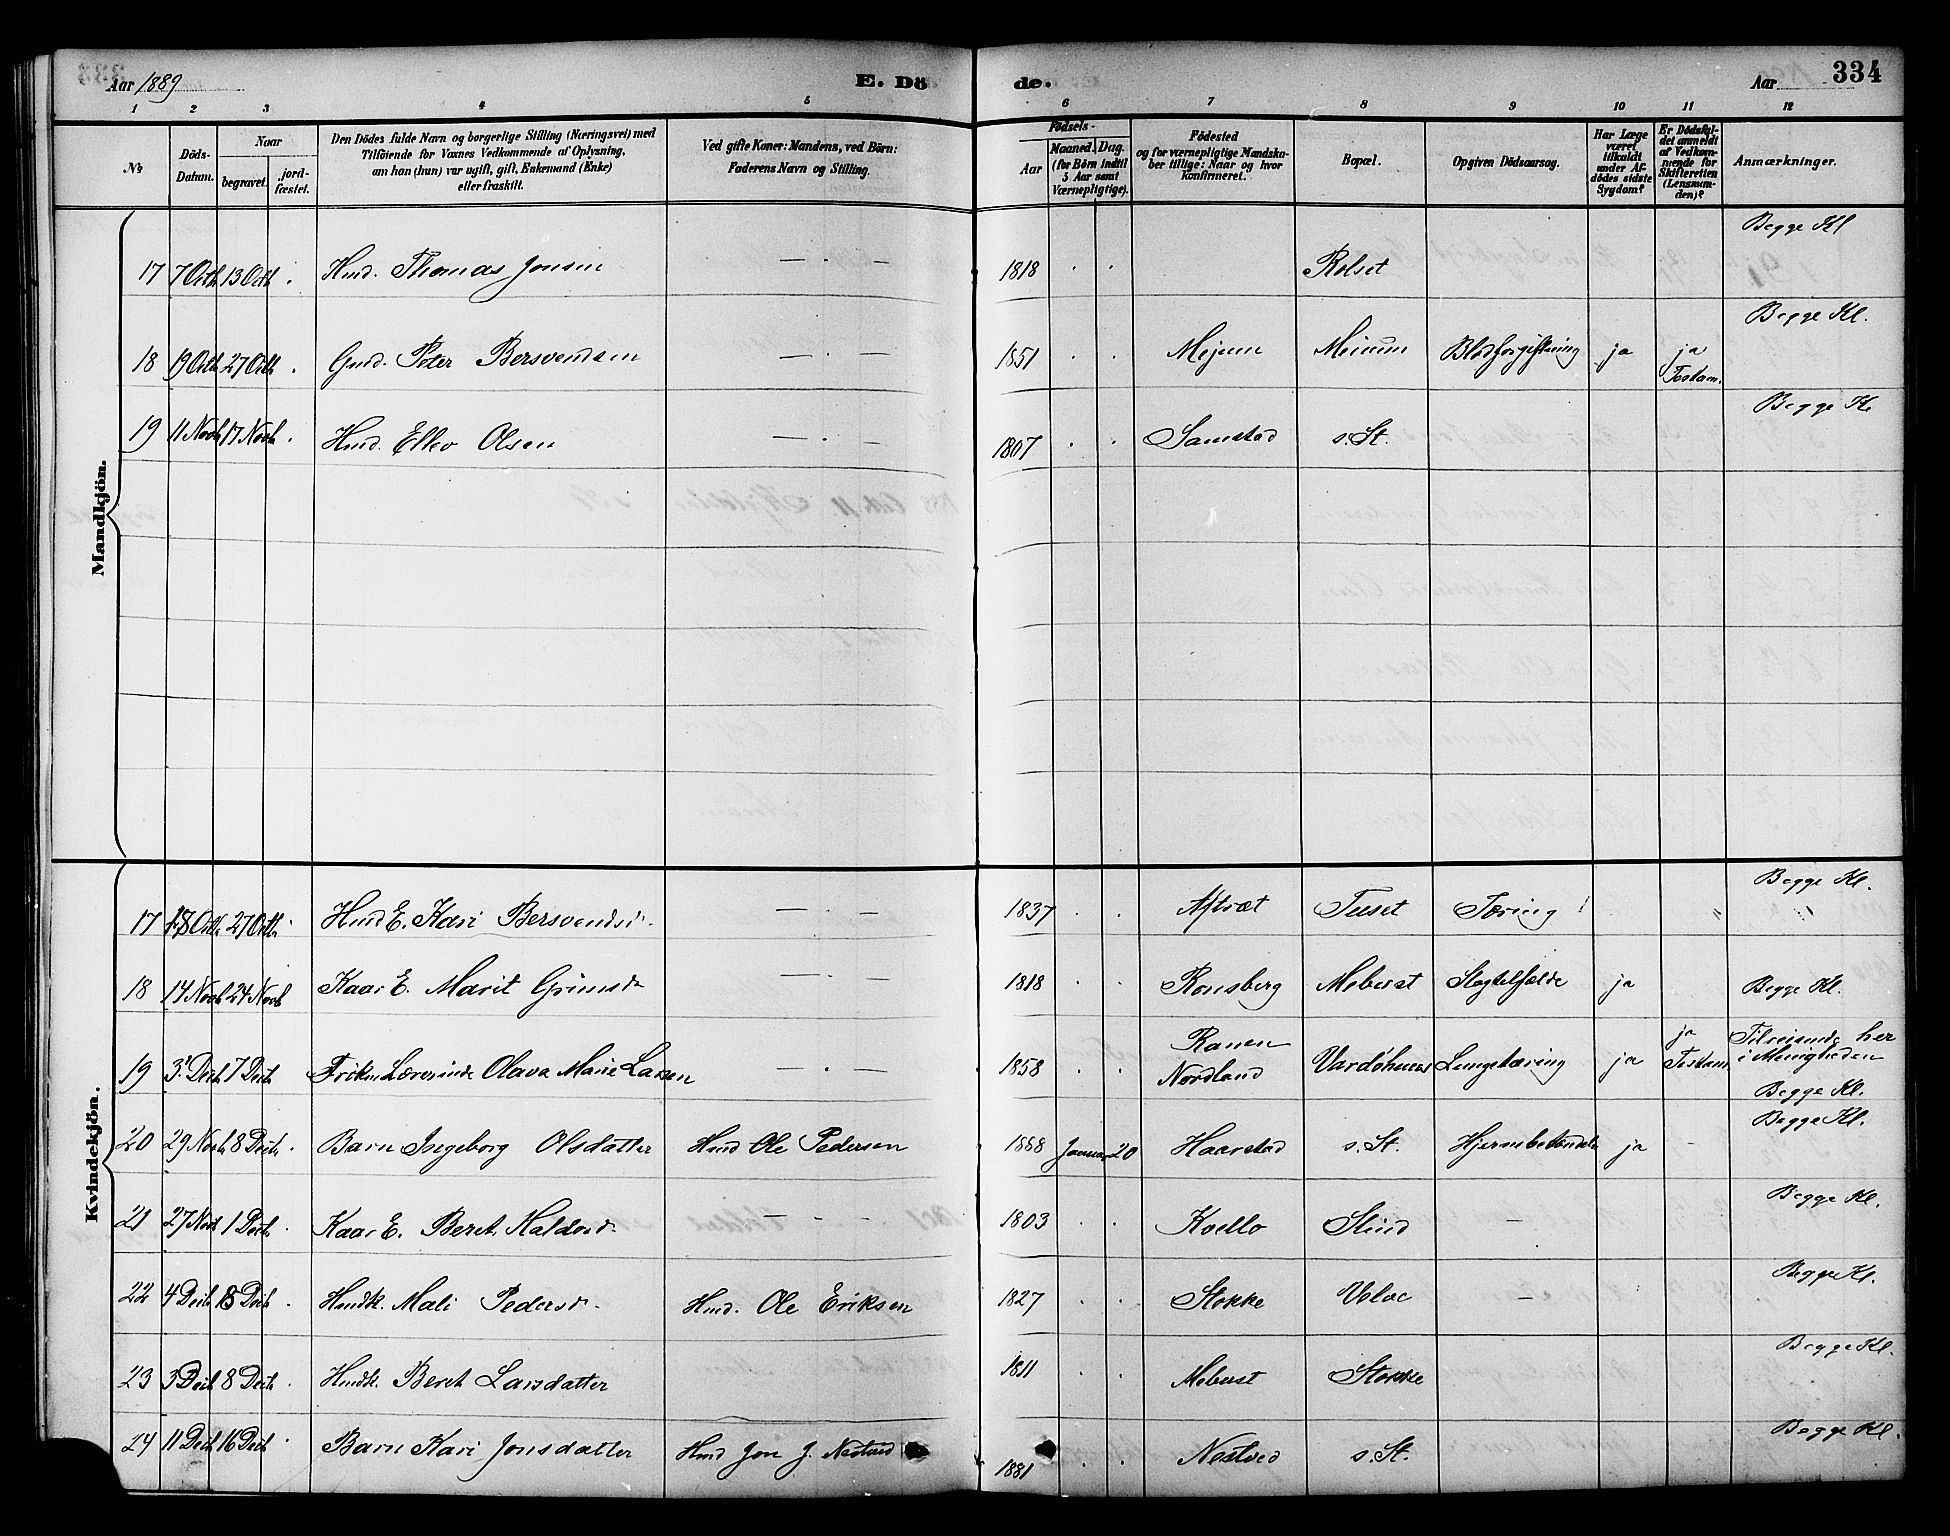 Aar 1889
E. Dö
de.
Aar
334
1 2 3 4 5 6 7 8 9 10 11 12
No
Döds-
Datum.
Naar
begravet.
jord-
fæstet.
Den Dödes fulde Navn og borgerlige Stilling (Næringsvei) med
Tilföiende for Voxnes Vedkommende af Oplysning,
om han (hun) var ugift, gift, Enkemand (Enke)
eller fraskilt.
Ved gifte Koner: Mandens, ved Börn:
Faderens Navn og Stilling.
Födsels-
Aar
Maaned. Dag.
(for Börn indtil
5 Aar samt
Værnepligtige).
Födested
og for værnepligtige Mandska-
ber tillige: Naar og hvor
konfirmeret.
Bopæl.
Opgiven Dödsaarsag.
Har Læge
været
tilkaldt
under Af-
dödes sidste
Sygdom?
Er Dödsfal-
det anmeldt
af Vedkom-
mende for
Skifteretten
(Lensman-
den)?
Anmærkninger.
Mandkjön.
17 7 Octb. 13 Octb. Hmd. Thomas Jonsen — . — 1818 . . Rolset Begge Kl
18 19 Octb. 27 Octb. Gmd. Peter Bersvendsen — . — 1851 . . Mejum Meium Blodforgiftning ja ja Testam. Begge Kl.
19 11 Novb. 17 Novb. Hmd. Ellev Olsen — . — 1807 . . Samstad s. St. Begge Kl
Kvindekjön.
17 18 Octb. 27 Octb. Hmd E. Kari Bersvendsd. — . — 1837 . . Aftræt Tuset Tæring Begge Kl.
18 14 Novb. 24 Novb. Kaar E. Marit Grimsd. — . — 1818 . . Ronsberg Mebust Slagtilfælde ja Begge Kl.
19 3 Decb. 7 Decb. Frøken Lærerinde Olava Marie Larsen — . — 1858 . . Ranen Nordland Vardøhuus Lungetæring ja ja Testam. Tilreisende her i Menigheden Begge Kl.
20 29 Novb. 8 Decb. Barn Ingeborg Olsdatter Hmd Ole Pedersen 1888 Januar 20 Haarstad s. St. Hjernebetændelse ja - Begge Kl.
21 27 Nov 1 Decb. Kaar E. Beret Haldosd. — - — 1803 . . Kvello Slind — Begge Kl.
22 4 Decb. 8 Decb. Hmdk. Mali Pedersd. Hmd. Ole Eriksen 1827 . . Stokke Velve — Begge Kl.
23 3 Decb. 8 Decb. Hmdk. Beret Larsdatter 1811 . . Mebust Stokke Begge Kl.
24 11 Decb. 16 Decb. Barn Kari Jonsdatter Hmd Jon J. Nestvед 1881 . . Nestved s. St. Begge Kl.